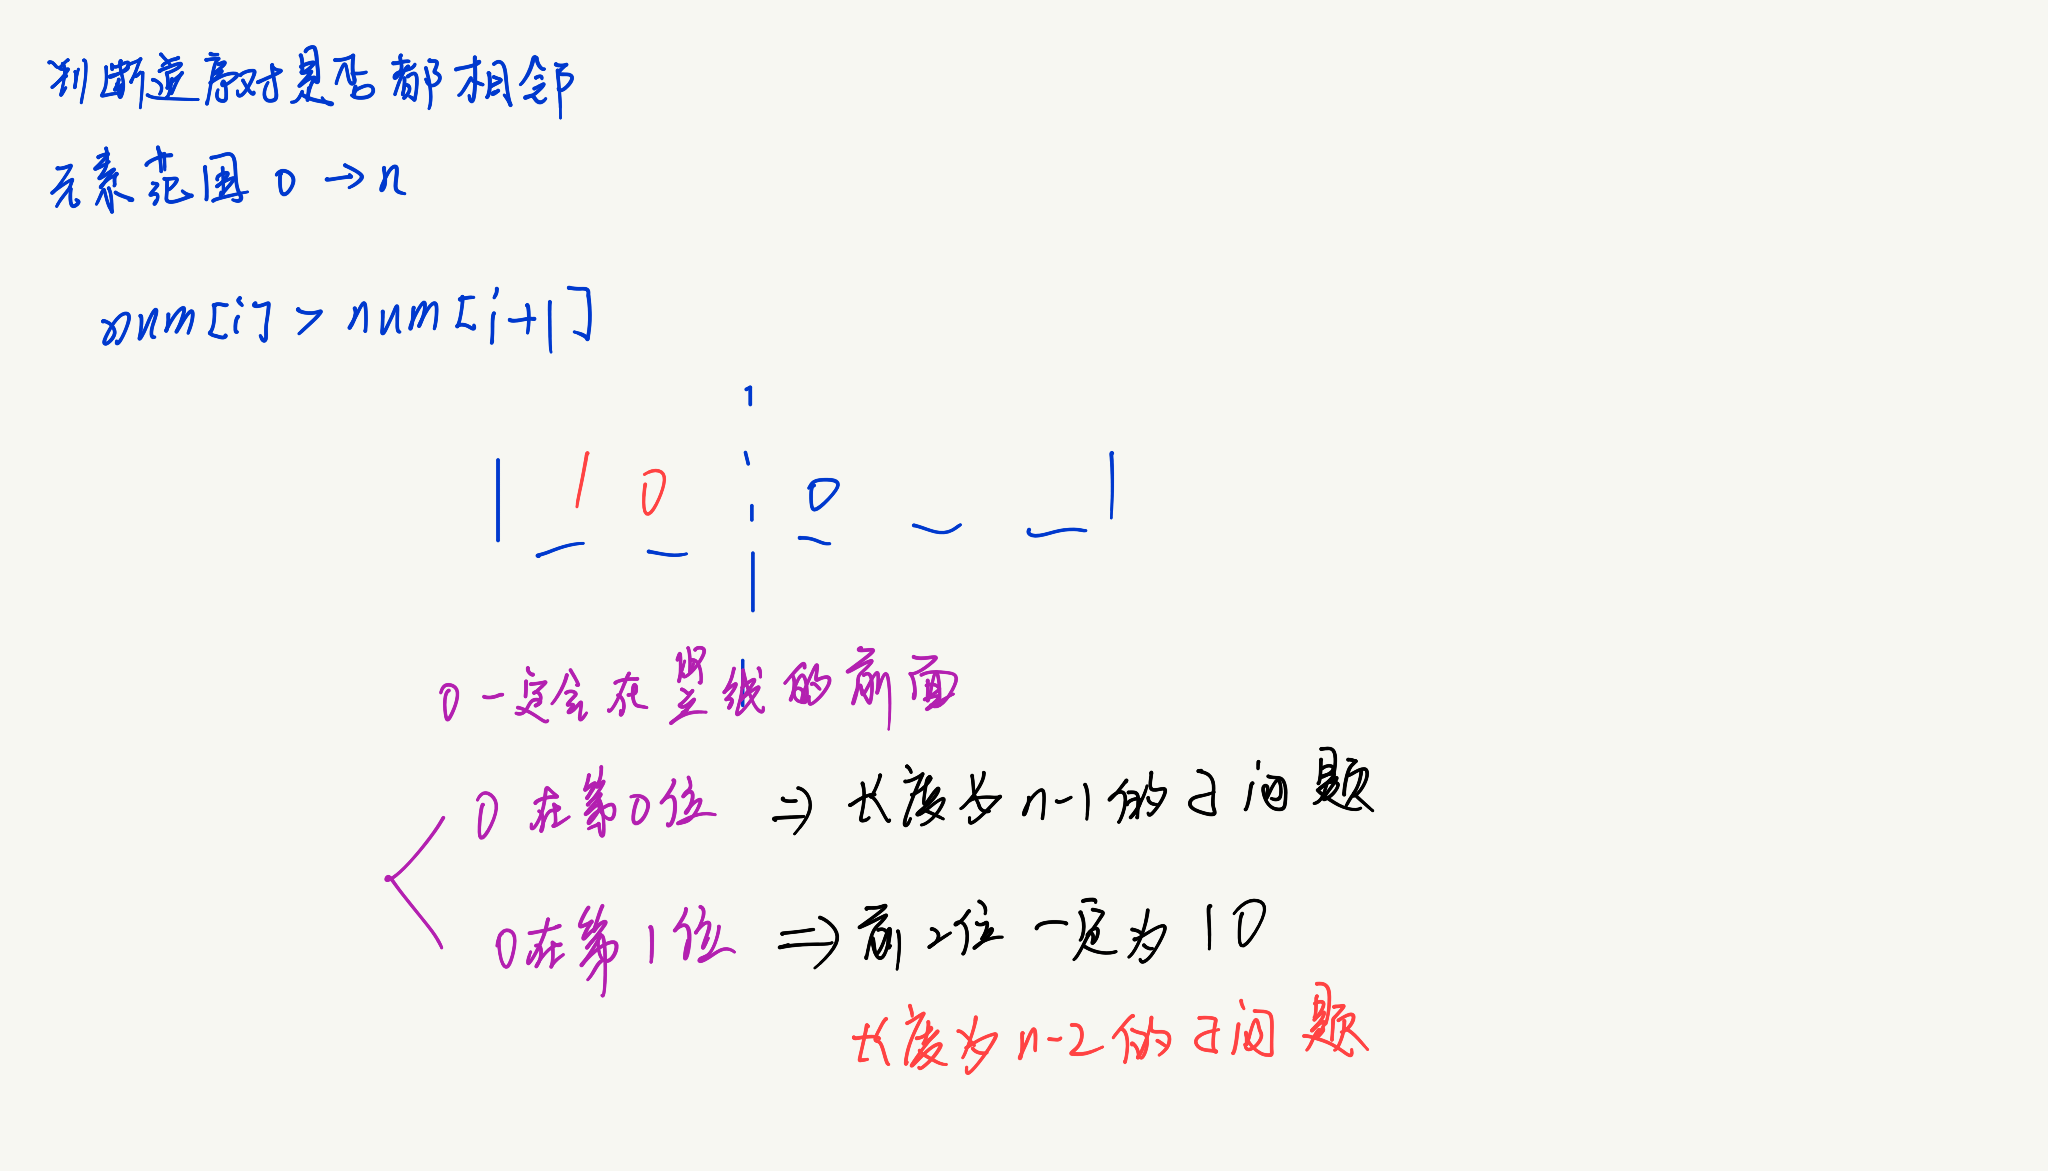 判断逆序对是否都相邻
元素范围 0 → n
num[i] > num[i+1]
1 0 0
0一定会在竖线的前面
0在第0位 ⇒ 长度为n-1的子问题
0在第1位 ⇒ 前2位一定为10
长度为n-2的子问题